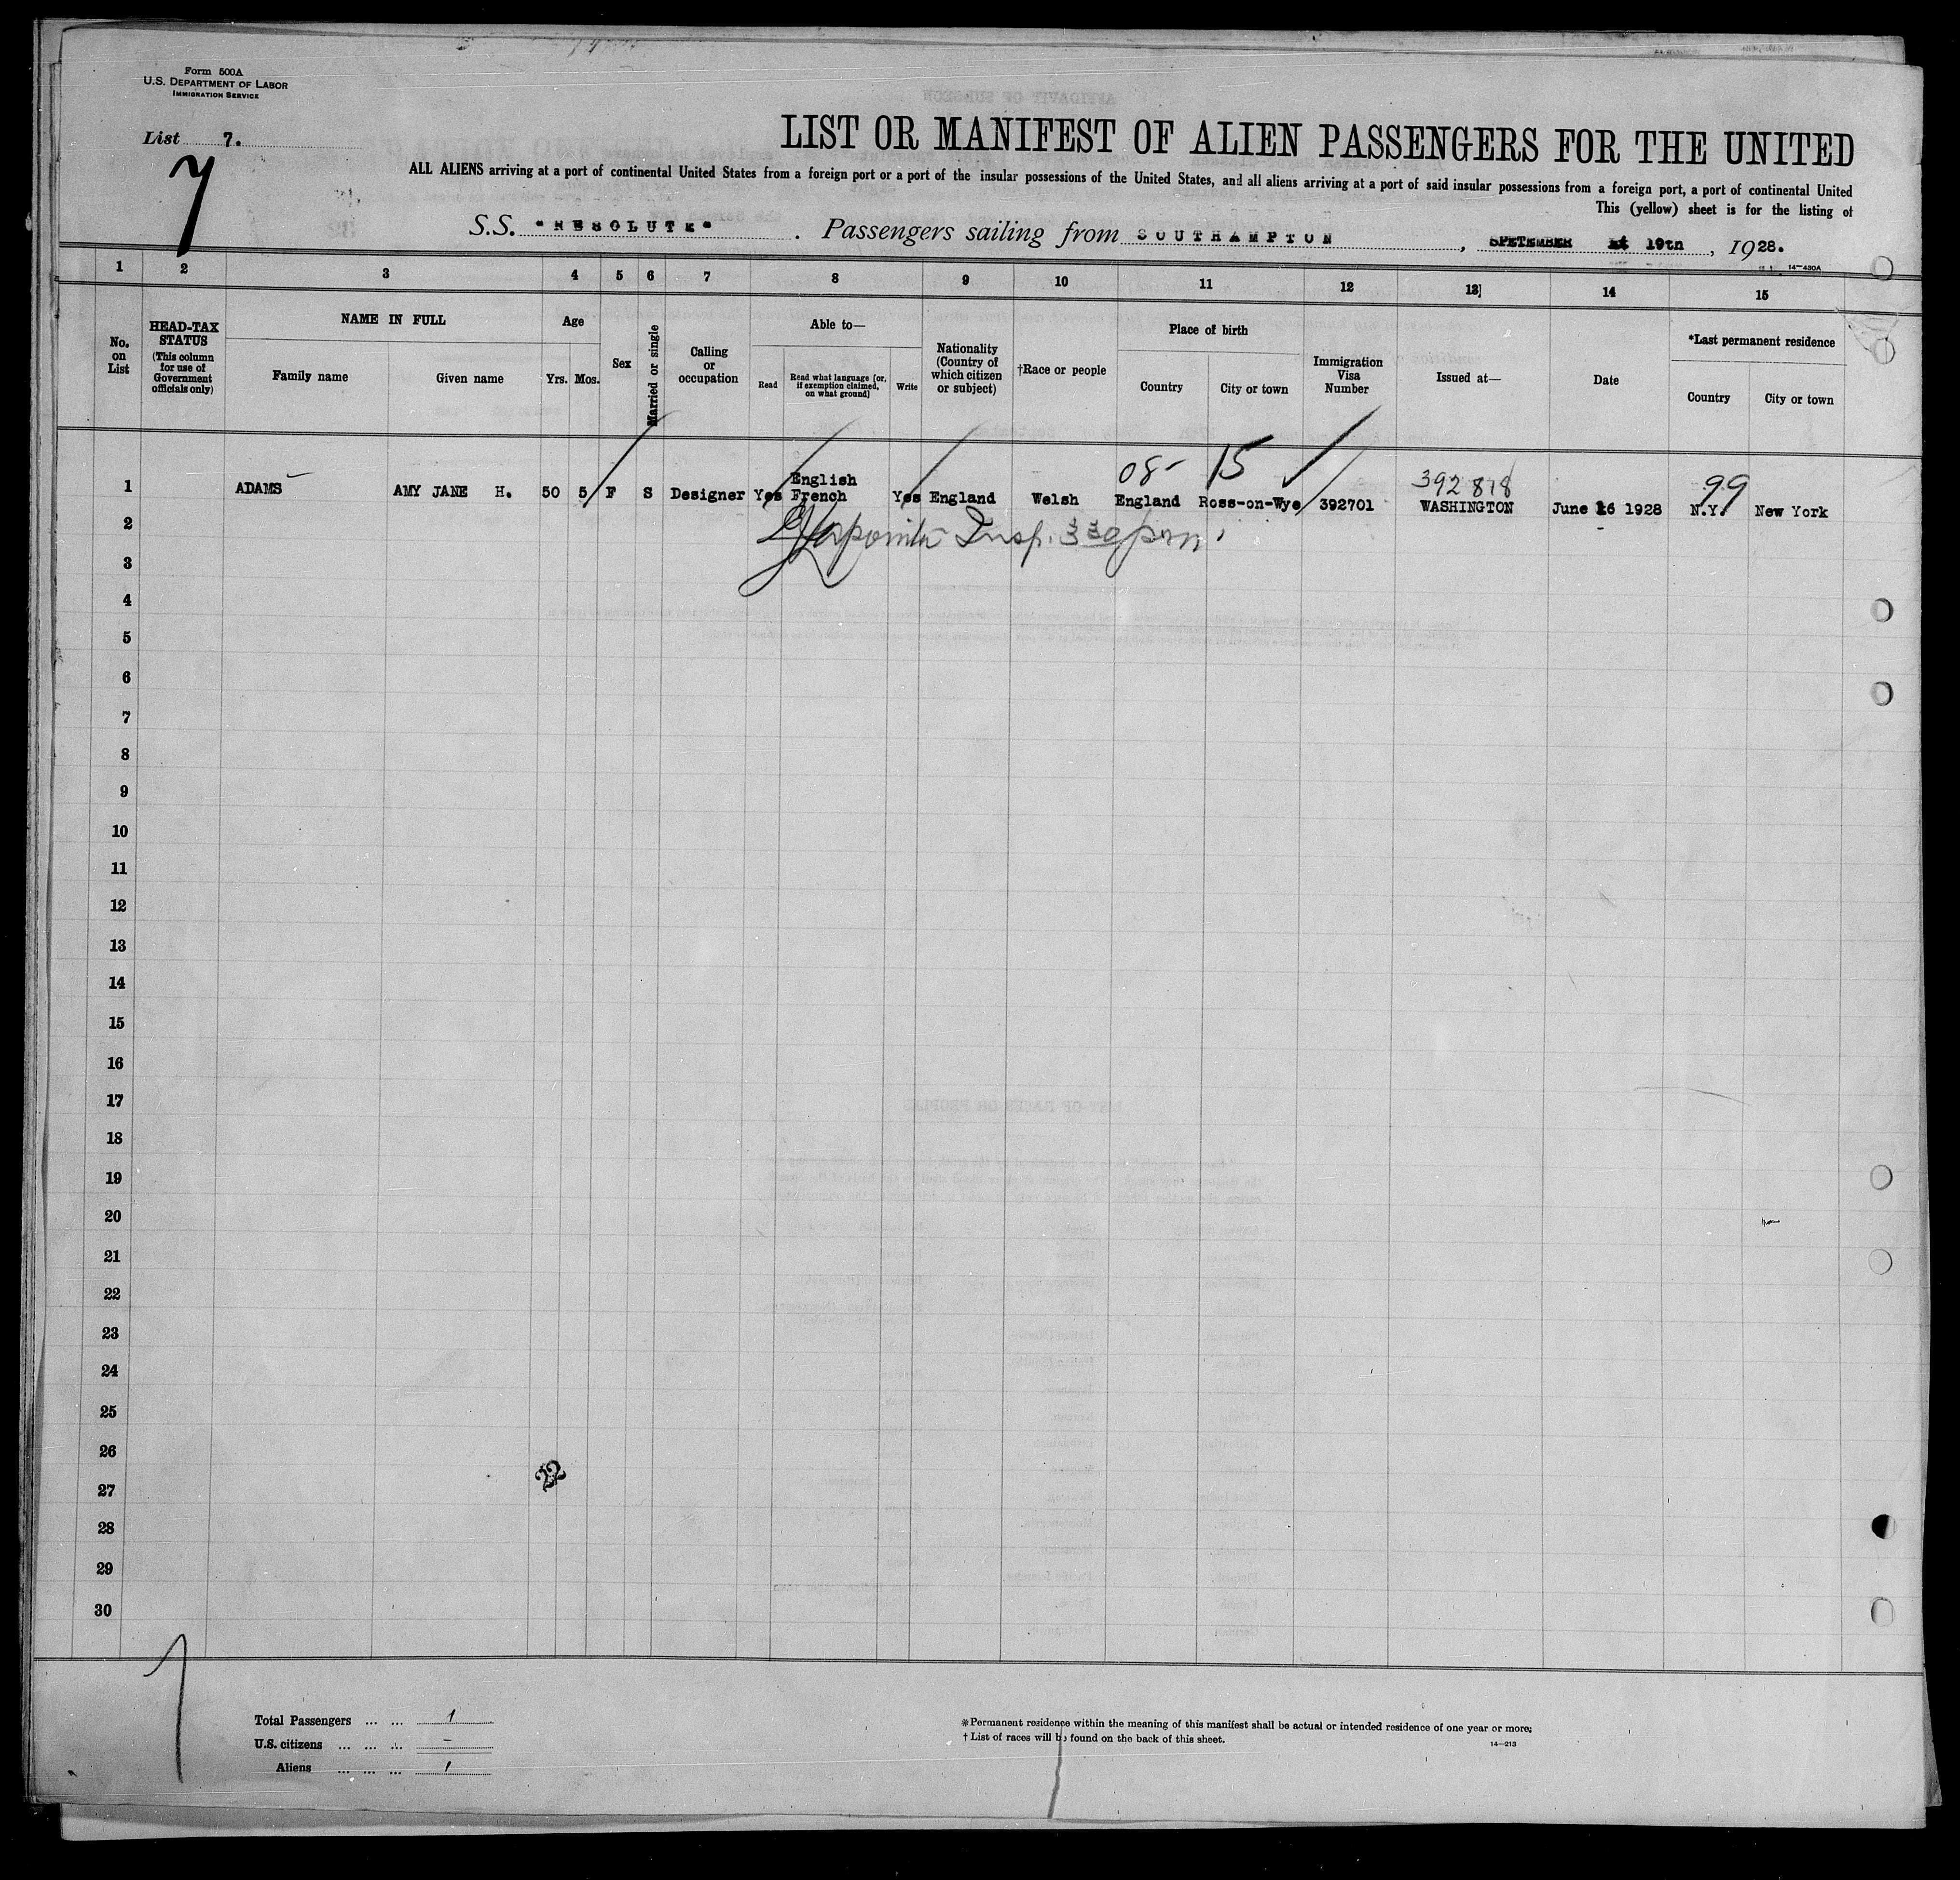 Form 500A
U.S. DEPARTMENT OF LABOR
IMMIGRATION SERVICE
List 7.
7
LIST OR MANIFEST OF ALIEN PASSENGERS FOR THE UNITED
ALL ALIENS arriving at a port of continental United States from a foreign port or a port of the insular possessions of the United States, and all aliens arriving at a port of said insular possessions from a foreign port, a port of continental United
This (yellow) sheet is for the listing of
S.S. "RESOLUTE". Passengers sailing from SOUTHAMPTON, SPETEMBER 19th, 1928.
14—430A
1 2 3 4 5 6 7 8 9 10 11 12 13] 14 15
No. on List
HEAD-TAX STATUS (This column for use of Government officials only)
NAME IN FULL
Family name
Given name
Age
Yrs. Mos.
Sex
Married or single
Calling or occupation
Able to—
Read
Read what language [or, if exemption claimed, on what ground]
Write
Nationality (Country of which citizen or subject)
†Race or people
Place of birth
Country
City or town
Immigration Visa Number
Issued at—
Date
*Last permanent residence
Country
City or town
08- 15 392 818 99
1 ADAMS AMY JANE H. 50 5 F S Designer Yes English French Yes England Welsh England Ross-on-Wye 392701 WASHINGTON June 16 1928 N.Y. New York
2
Insp. 330 pm
3
4
5
6
7
8
9
10
11
12
13
14
15
16
17
18
19
20
21
22
23
24
25
26
22
27
28
29
30
Total Passengers ... ... 1
U.S. citizens ... ... ... -
Aliens ... ... ... 1
*Permanent residence within the meaning of this manifest shall be actual or intended residence of one year or more.
† List of races will be found on the back of this sheet.
14—213